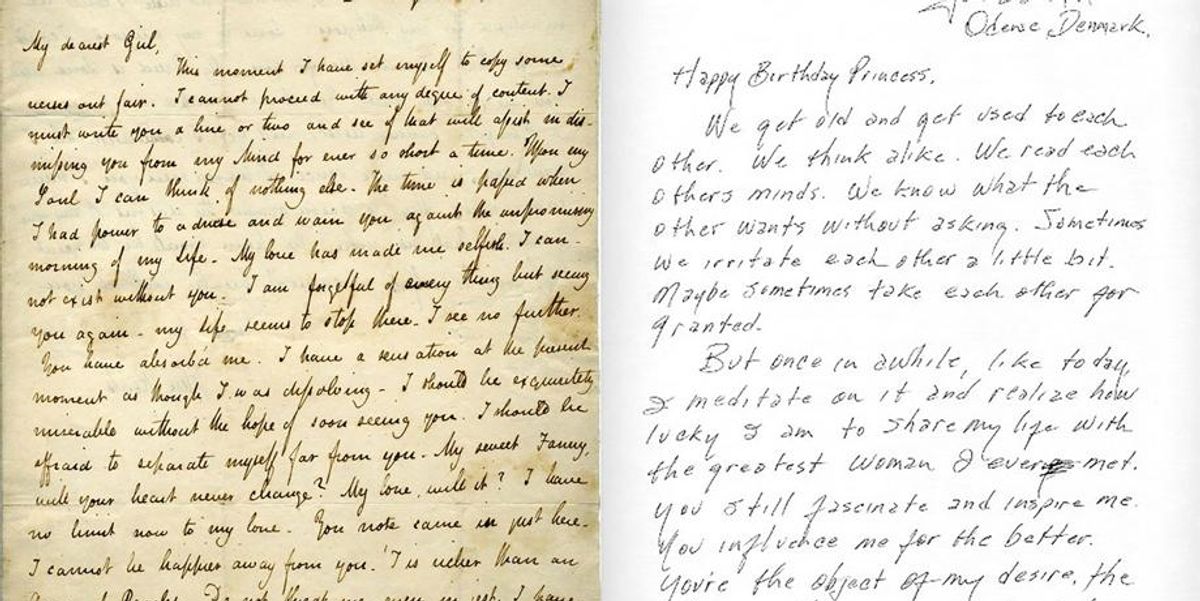 My dearest Girl,
This moment I have set myself to copy some
verses out fair. I cannot proceed with any degree of content. I
must write you a line or two and see if that will assist in dis-
missing you from my Mind for ever so short a time. Upon my
Soul I can think of nothing else - The time is passed when
I had power to advise and warn you againt the unpromising
morning of my Life - My love has made me selfish. I can-
not exist without you - I am forgetful of every thing but seeing
you again - my Life seems to stop there - I see no further.
You have absorb'd me. I have a sensation at the present
moment as though I was dissolving - I should be exquisitely
miserable without the hope of soon seeing you. I should be
affraid to separate myself far from you. My sweet Fanny,
will your heart never change? My love, will it? I have
no limit now to my love - You note came in just here -
I cannot be happier away from you. 'T is richer than an
Odense, Denmark.
Happy Birthday Princess,
We get old and get used to each
other. We think alike. We read each
others minds. We know what the
other wants without asking. Sometimes
we irritate each other a little bit.
Maybe sometimes take each other for
granted.
But once in awhile, like today,
I meditate on it and realize how
lucky I am to share my life with
the greatest woman I ever met.
You still fascinate and inspire me.
You influence me for the better.
You're the object of my desire, the